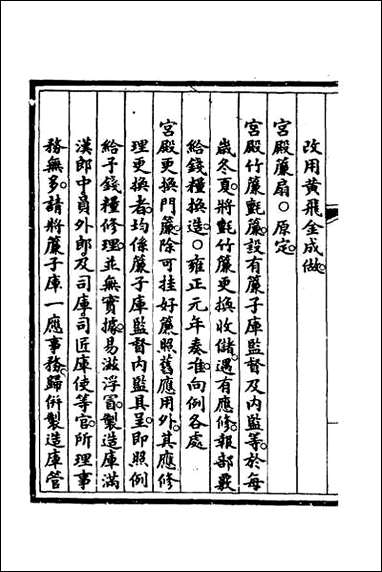 改用黃飛金成做。
宮殿簾扇。○原定。
宮殿竹簾氈簾。設有簾子庫監督及內監等。於每
歲冬夏。將氈竹簾更換收儲。遇有應修。報部覈
給錢糧換造。○雍正元年奏准。向例各處
宮殿更換門簾。除可挂好簾照舊應用外。其應修
理更換者。均係簾子庫監督內監具呈。即照例
給予錢糧修理。並無實據。易滋浮冒。製造庫滿
漢郎中員外郎。及司庫司匠庫使等官。所理事
務無多。請將簾子庫一應事務。歸併製造庫管